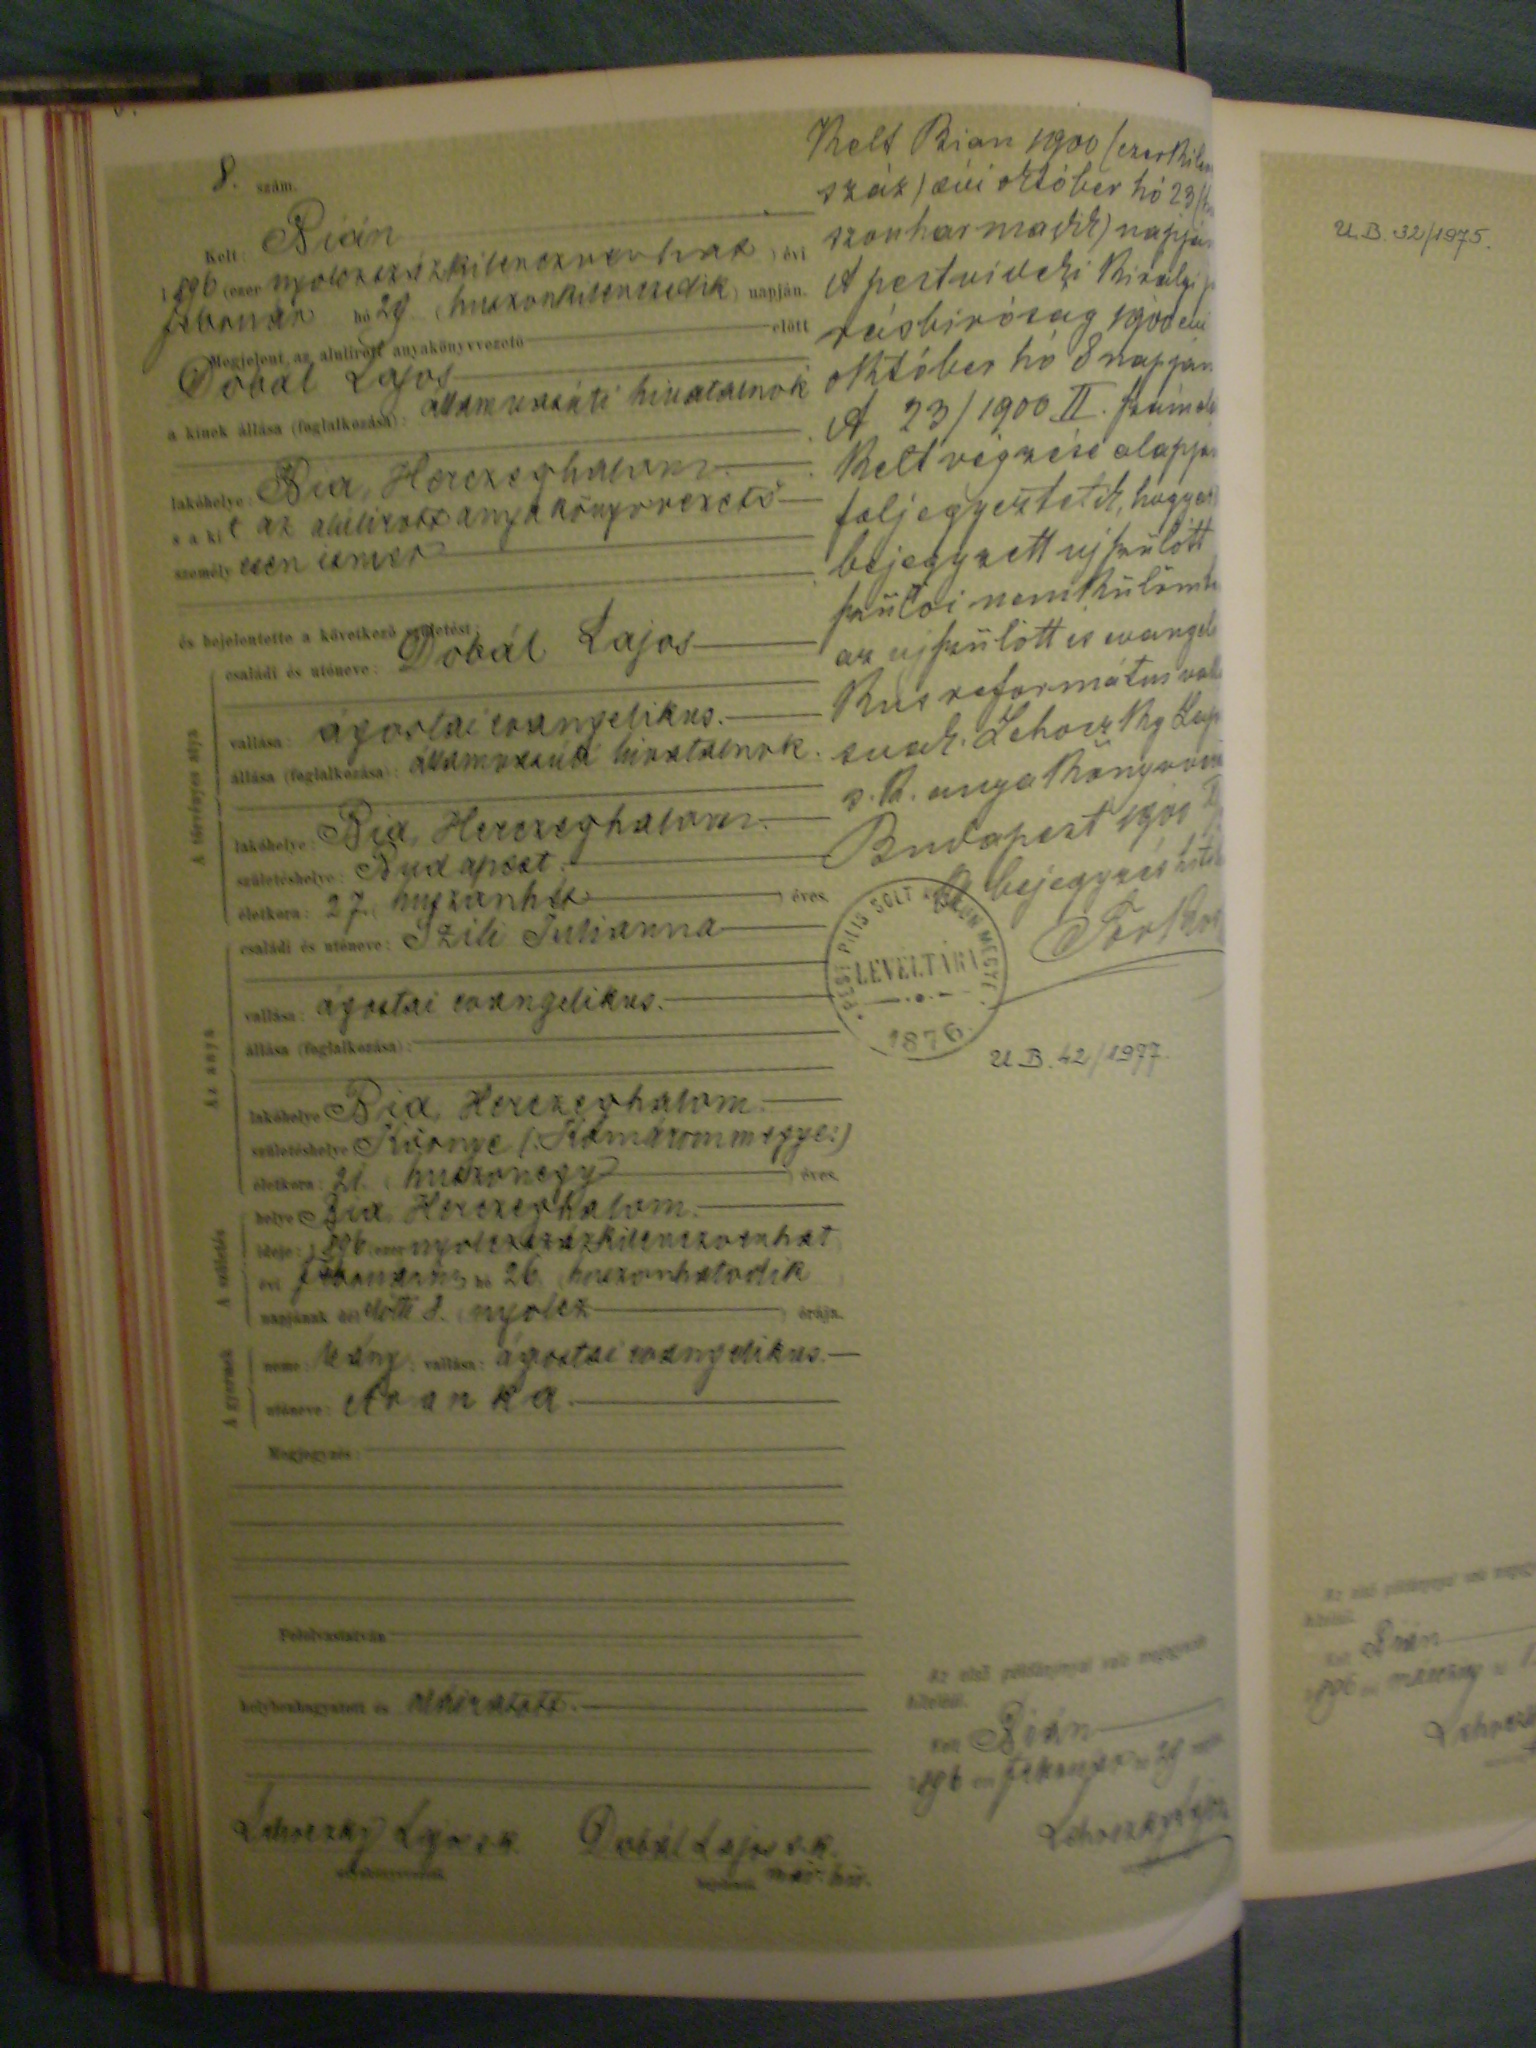 8. szám.
Kelt: Bián
1896 (ezer nyolczszázkilenczvenhat) évi
február hó 29 (huszonkilenczedik) napján.
Megjelent az alulirott anyakönyvvezető előtt
Dobál Lajos
a kinek állása (foglalkozása): államvasúti hivatalnok
lakóhelye: Bia, Herczeghalom
s a kit az alulirott anyakönyvvezető
személyesen ismer
és bejelentette a következő születést:
A törvényes atya
családi és utóneve: Dobál Lajos
vallása: ágostai evangelikus.
állása (foglalkozása): államvasúti hivatalnok.
lakóhelye: Bia, Herczeghalom.
születéshelye: Budapest.
életkora: 27. (huszonhét) éves
Az anya
családi és utóneve: Szili Julianna
vallása: ágostai evangelikus.
állása (foglalkozása):
lakóhelye Bia, Herczeghalom.
születéshelye Környe (:Komárommegye:)
életkora: 21. (huszonegy) éves.
A születés
helye Bia, Herczeghalom.
ideje: 1896 (ezer nyolczszázkilenczvenhat
évi februárius hó 26. (huszonhatodik
napjának dél előtti 8. (nyolcz) órája.
A gyermek
neme: leány; vallása: ágostai evangelikus.
utóneve: Aranka.
Megjegyzés:
Felolvastatván
helybenhagyatott és aláiratott.
Lehoczky Lajos s.k. Dobál Lajos s.k.
anyakönyvvezető. bejelentő.
Kelt Bian 1900 (ezerkilen
száz) évi október hó 23 (hu
szonharmadik) napján
A pestvidéki királyi
résbiróság 1900 évi
október hó 8 napján
A 23/1900 II. szám
kelt végzése alapján
feljegyeztetik, hogy
bejegyzett ujszülött
szülői nemkülömb
az ujszülött is evangeli
kus református val
suak. Lehoczky Laj
s.k. anyakönyvvez
Budapest 1901
A bejegyzés hitel
PEST PILIS SOLT KISKUN MEGYE
LEVÉLTÁRA
1876.
U.B. 42/1977.
Az első példánynyal való megegyezés
hiteléül.
Kelt Bián
1896 évi február hó 29
Lehoczky Lajos
U.B. 32/1975.
Az első példánynyal való
hiteléül.
Kelt Bián
1896 évi